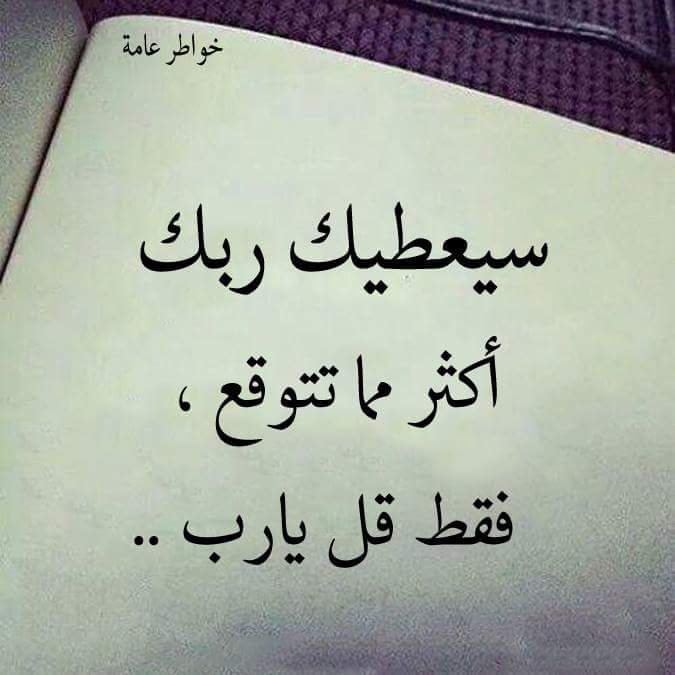 خواطر عامة
سيعطيك ربك
أكثر مما تتوقع ،
فقط قل يارب ..